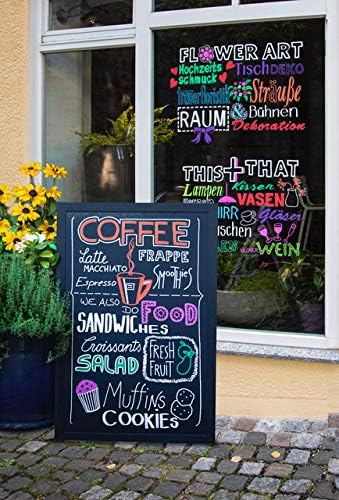 FLOWER ART
Hochzeits
schmuck
TischDEKO
Trauerfloristik
Sträuße
RAUM & Bühnen
Dekoration
THIS + THAT
Lampen
Kissen
VASEN
Gläser
WEIN
COFFEE
Latte
MACCHIATO
FRAPPE
Espresso
Smoothies
WE ALSO
DO
FOOD
SANDWICHES
Croissants
SALAD
FRESH
FRUIT
Muffins
COOKIES